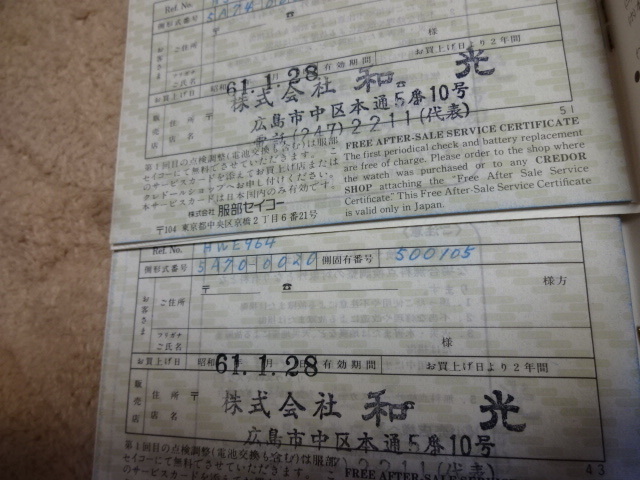 Ref. No.
側形式番号 5A74
〒 ☎
お客さま
ご住所
フリガナ
ご氏名
様
お買上げ日 昭和 61.1.28 有効期間 お買上げ日より2年間
販売店
住所 〒
店名
株式会社 和光
広島市中区本通5番10号
電話(247)2211(代表)
51
第1回目の点検調整(電池交換も含む)は服部
セイコーにて無料でさせていただきます。こ
のサービスカードを添えてお買上げ店または
クレドールショップへお申し付けください。
本サービスカードは日本国内のみ有効です。
株式会社 服部セイコー
〒104 東京都中央区京橋2丁目6番21号
FREE AFTER-SALE SERVICE CERTIFICATE
The first periodical check and battery replacement
are free of charge. Please order to the shop where
the watch was purchased or to any CREDOR
SHOP attaching the "Free After-Sale Service
Certificate." This Free After-Sale Service Certificate
is valid only in Japan.
Ref. No. HWE964
側形式番号 5A70-0020 側固有番号 500105
〒 ☎ 様方
お客さま
ご住所
フリガナ
ご氏名
様
お買上げ日 昭和 61.1.28 有効期間 お買上げ日より2年間
販売店
住所 〒
店名
株式会社 和光
広島市中区本通5番10号
2211(代表)
43
第1回目の点検調整(電池交換も含む)は服部
セイコーにて無料でさせていただきます。こ
のサービスカードを添えてお買上げ店または
FREE AFTER-SALE SERVICE